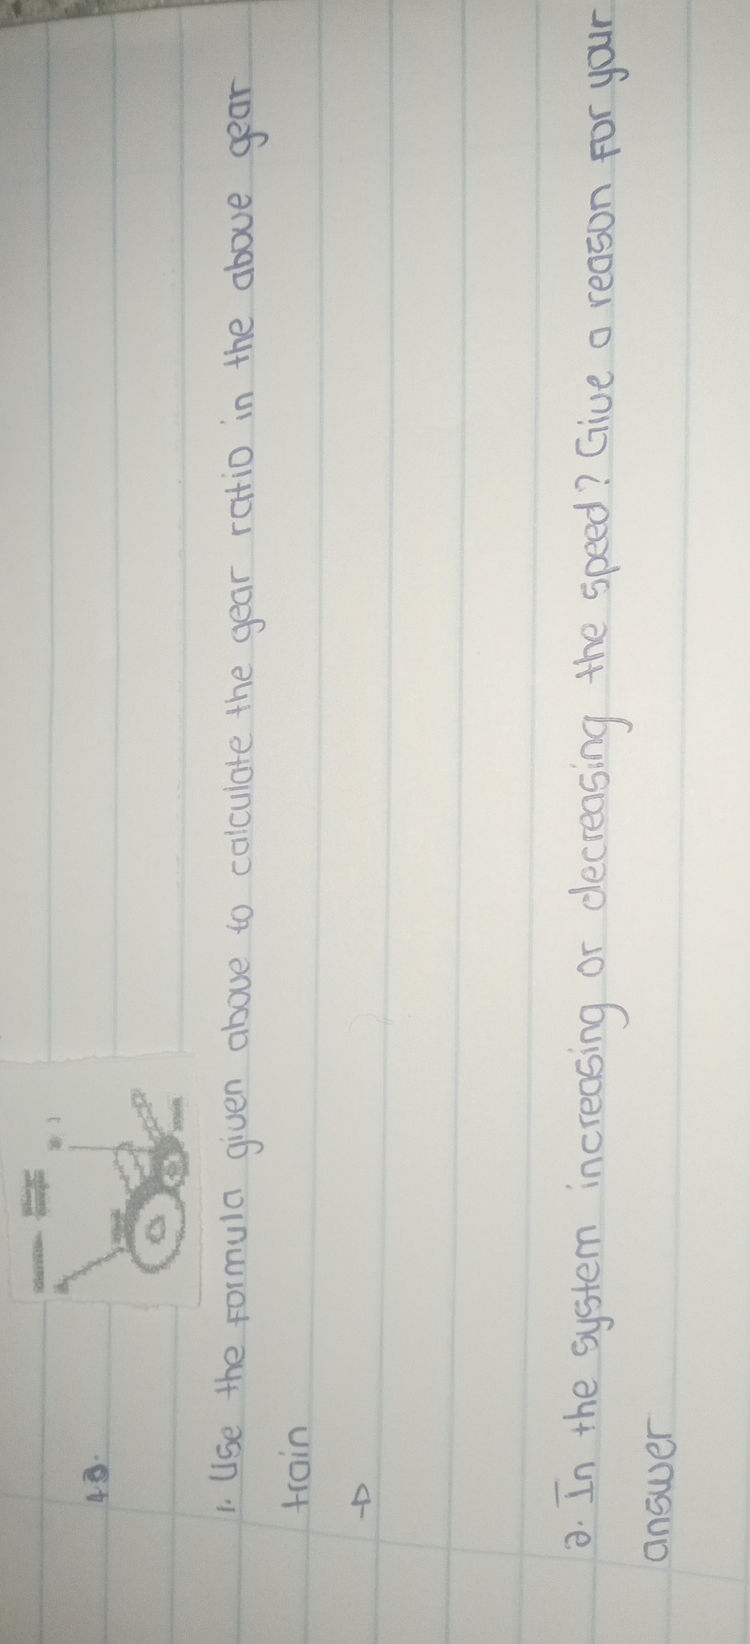 4.3.
1. Use the formula given above to calculate the gear ratio in the above gear
train
2. In the system increasing or decreasing the speed? Give a reason for your
answer